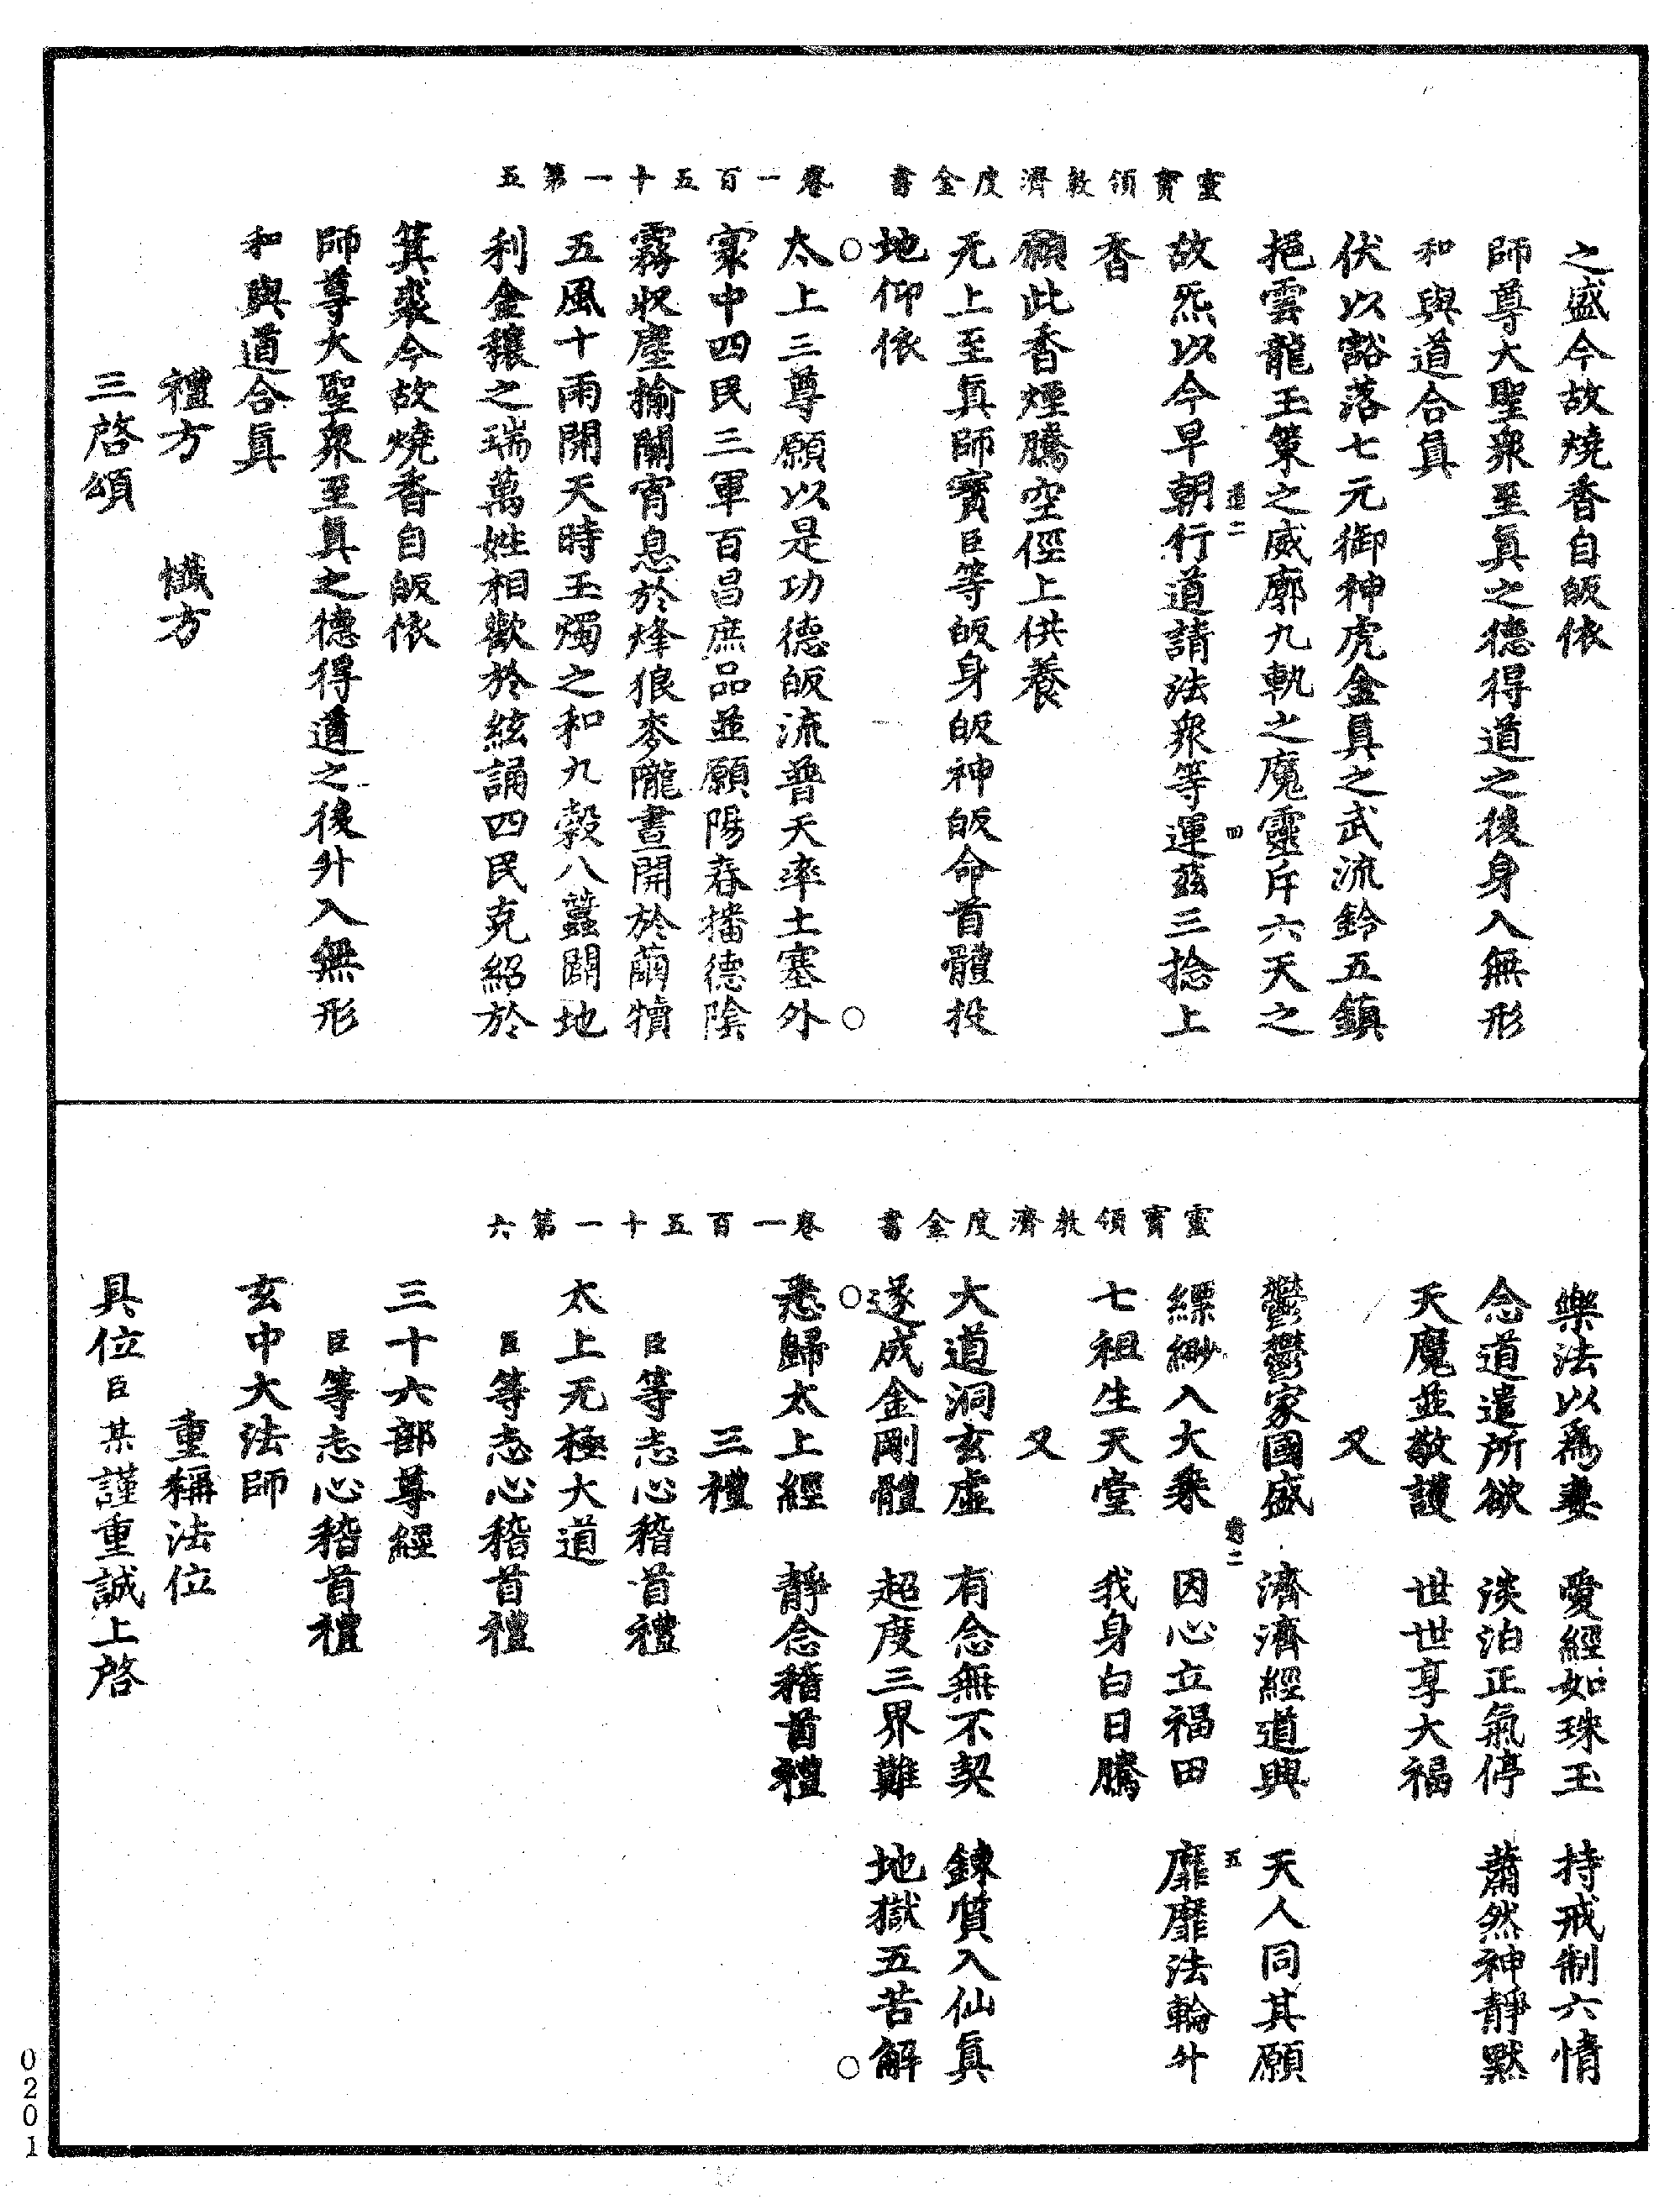 靈寳領教濟度金書　卷一百五十一第五
之盛今故燒香自皈依
師尊大聖衆至真之德得道之後身入無形
和與道合真
伏以豁落七元御神虎金真之武流鈴五鎮
挹雲龍玉策之威廓九軌之魔靈斥六天之
故炁以今早朝行道請法衆等運茲三捻上
香
願此香煙騰空徑上供養
无上至真師寳臣等皈身皈神皈命首體投
地仰依
太上三尊願以是功德皈流普天率土塞外
寰中四民三軍百昌庶品並願陽春播德陰
霧收塵揄關宵息於烽狼麥隴晝開於繭犢
五風十雨開天時玉燭之和九穀八蠶闢地
利金穰之瑞萬姓相歡於絃誦四民克紹於
箕裘今故燒香自皈依
師尊大聖衆至真之德得道之後升入無形
和與道合真
禮方　懺方
三啓頌
靈寳領教濟度金書　卷一百五十一第六
樂法以為妻　愛經如珠玉　持戒制六情
念道遣所欲　淡泊正氣停　蕭然神靜默
天魔並敬護　世世享大福
又
鬱鬱家國盛　濟濟經道興　天人同其願
縹緲入大乘　因心立福田　靡靡法輪升
七祖生天堂　我身白日騰
又
大道洞玄虛　有念無不契　鍊質入仙真
遂成金剛體　超度三界難　地獄五苦解
悉歸太上經　靜念稽首禮
三禮
臣等志心稽首禮
太上无極大道
臣等志心稽首禮
三十六部尊經
臣等志心稽首禮
玄中大法師
重稱法位
具位臣某謹重誠上啓
0201